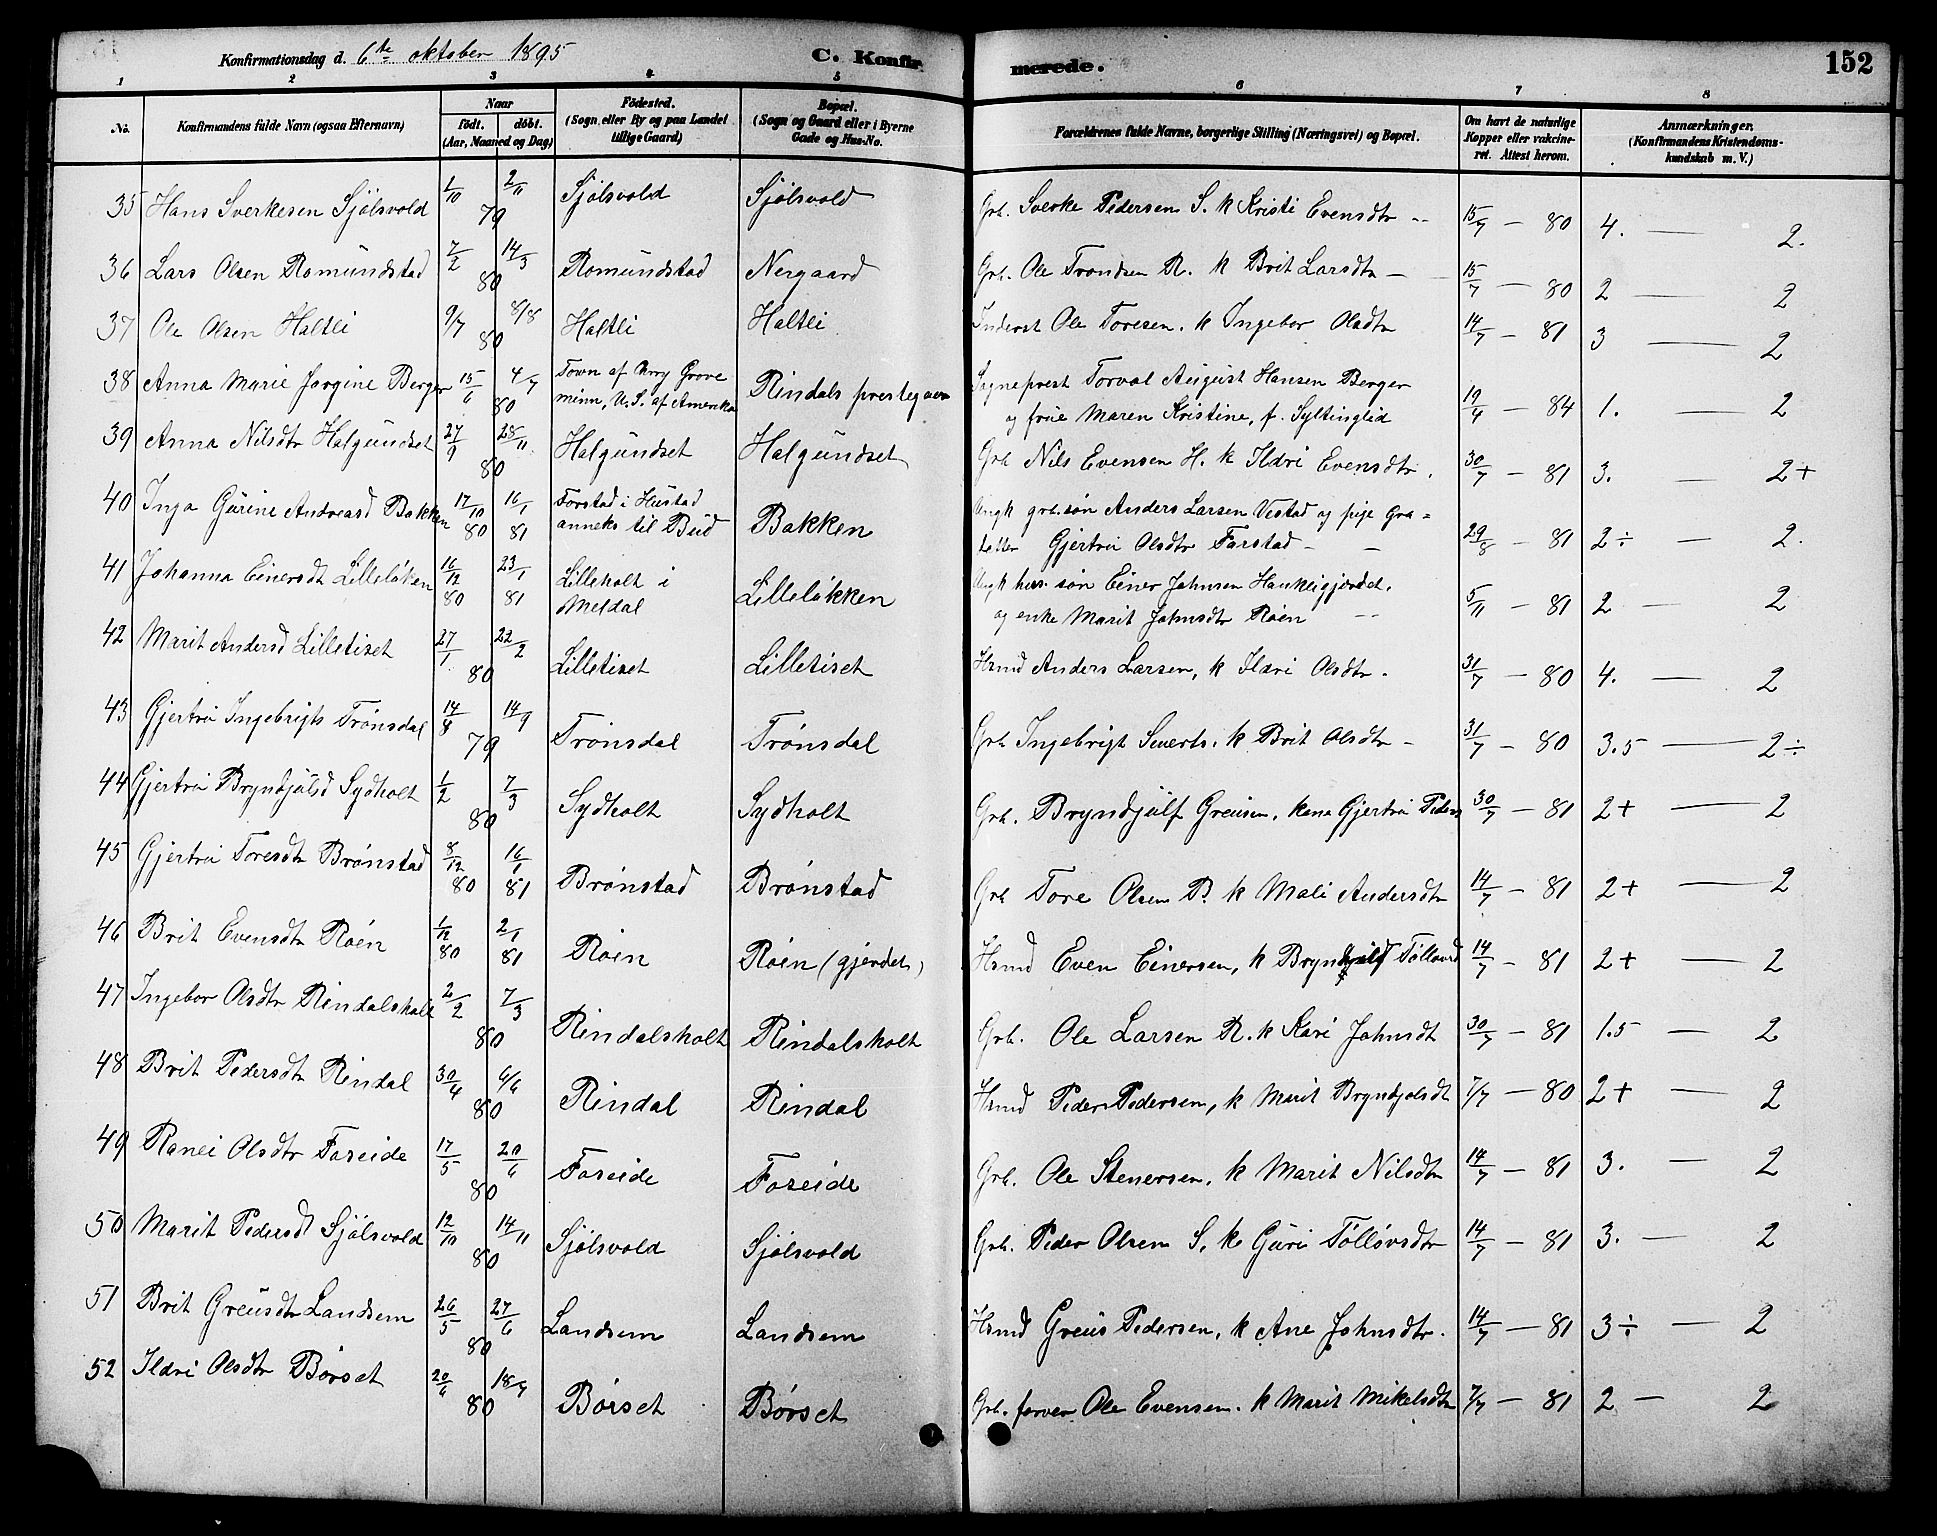 Konfirmationsdag d. 6te oktober 1895 C. Konfirmerede. 152
1 2 3 4 5 6 7 8
No. Konfirmandens fulde Navn (ogsaa Efternavn) Naar födt. döbt. (Aar, Maaned og Dag) Födested. (Sogn eller By og paa Landet tillige Gaard) Bopæl. (Sogn og Gaard eller i Byerne Gade og Hus-No. Forældrenes fulde Navne, borgerlige Stilling (Næringsvei) og Bopæl. Om havt de naturlige Kopper eller vakcineret. Attest herom. Anmærkninger. (Konfirmandens Kristendomskundskab m. V.)
35 Hans Sverkesen Sjølsvold 1/10 2/11 79 Sjølsvold Sjølsvold Grb. Sverke Pedersen S. k Kristi Evensdtr 15/7 - 80 4. — 2.
36 Lars Olsen Romundstad 7/2 14/3 80 Romundstad Nergaard Grb. Ole Trondsen R. k Brit Larsdtr - 15/7 - 80 2 — 2
37 Ole Olsen Haltli 9/7 8/8 80 Haltli Haltli Inderst Ole Toresen. k Ingebor Olsdtr 14/7 - 81 3 — 2
38 Anna Marie Jorgine Berger 15/6 4/7 80 Town af Cherry Grove minn, U.S. af Amerika Rindals prestegaard Sogneprest Torval August Hansen Berger
og frue Maren Kristine, f. Syltinglid 19/4 - 84 1. — 2
39 Anna Nilsdtr Halgundset 27/9 28/11 80 Halgundset Halgundset Grb Nils Evensen H. k Ildri Evensdtr. 30/7 - 81 3. — 2+
40 Inga Gurine Andreasd Bakken 17/10 80 16/1 81 Forstad i Hustad anneks til Bud Bakken Ungk grb.søn Anders Larsen Vestad og pige
Gjertru Olsdtr Farstad - 29/8 - 81 2÷ — 2.
41 Johanna Einersdt Lilleløken 16/12 80 23/1 81 Lilleholt i Meldal Lilleløkken Ungk hus. søn Einer Johnsen Haukligjærdet.
og enke Marit Johnsdtr Røen 5/11 - 81 2 — 2
42 Marit Andersd Lilletiset 27/1 22/2 80 Lilletiset Lilletiset Hsmd Anders Larsen, k Ildri Olsdtr. 31/7 - 80 4. — 2
43 Gjertru Ingebrigts Trønsdal 14/8 14/9 79 Trønsdal Trønsdal Grb Ingebrigt Siverts. k Brit Olsdtr - 31/7 - 80 3.5 — 2÷
44 Gjertru Bryndjulsd Sydholt 1/2 7/3 80 Sydholt Sydholt Grb. Bryndjulf Greusen, kena Gjertru Peders 30/7 - 81 2+ — 2
45 Gjertru Toresdtr Brønstad 8/12 80 16/1 81 Brønstad Brønstad Grb Tore Olsen B. k Mali Andersdtr 14/7 - 81 2+ — 2
46 Brit Evensdtr Røen 1/12 80 2/1 81 Røen Røen (gjerdet) Hsmd Even Einersen, k Tøllovsd 14/7 - 81 2+ — 2
47 Ingebor Olsdtr Rindalsholt 2/2 7/3 80 Rindalsholt Rindalsholt Grb. Ole Larsen R. k Kari Johnsdt 30/7 - 81 1.5 — 2
48 Brit Pedersdt Rindal 30/4 6/6 80 Rindal Rindal Hsmd Peder Pedersen, k Marit Bryndjolsdt 7/7 - 80 2+ — 2
49 Ranei Olsdtr Foseide 17/5 20/6 80 Foseide Foseide Grb. Ole Stenersen, k Marit Nilsdtr 14/7 - 81 3. — 2
50 Marit Pedersdt Sjølsvold 12/10 14/11 80 Sjølsvold Sjølsvold Grb. Peder Olsen S, k Guri Tølløvsdtr 14/7 - 81 3. — 2
51 Brit Greusdtr Landsem 26/5 27/6 80 Landsem Landsem Hsmd Greus Pedersen, k Ane Johnsdtr. 14/7 - 81 3÷ — 2
52 Ildri Olsdtr Børset 20/6 18/7 80 Børset Børset Grb. farver Ole Evensen. k Marit Mikelsdtr 7/7 - 81 2 — 2